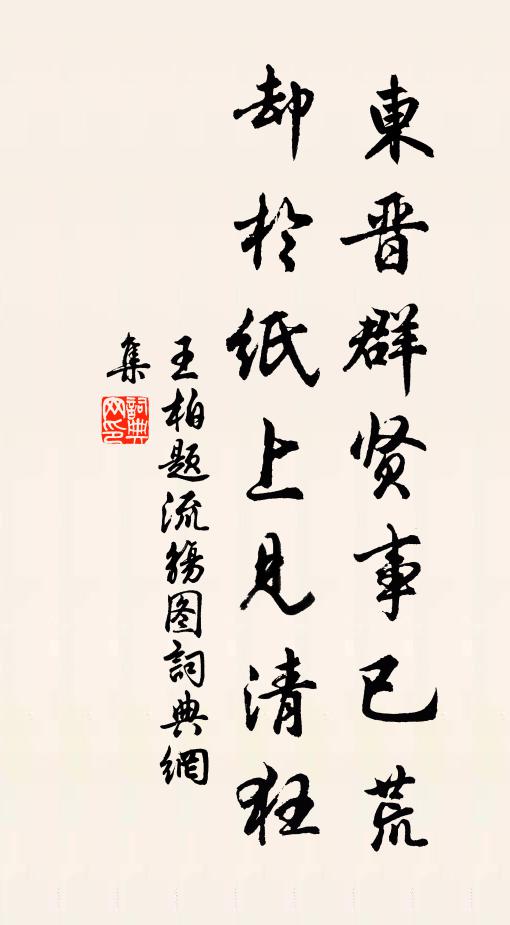 東晋群贤事已荒
却於紙上見清狂
王柏题流觴图詞典網
集
詞典网印